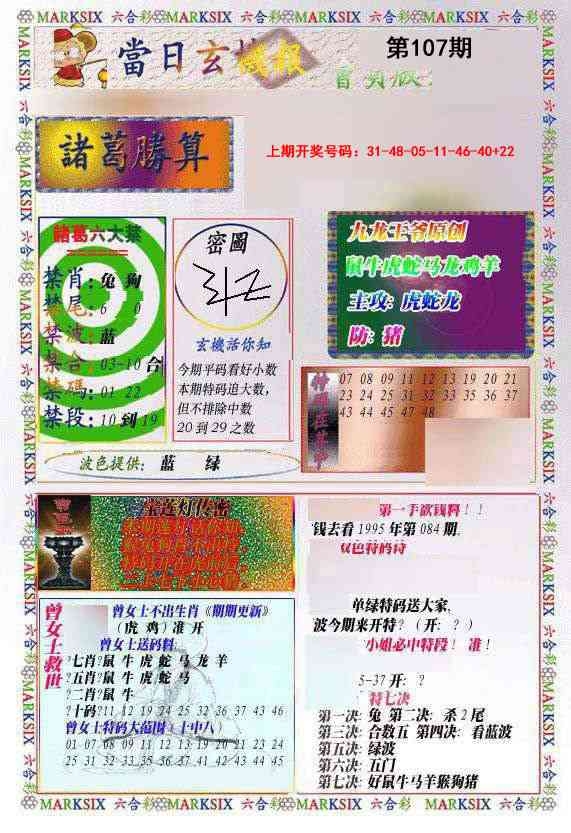 MARKSIX 六合彩 MARKSIX 六合彩 MARKSIX 六合彩 MARKSIX 六合彩
當日玄機報
第107期
諸葛勝算
上期开奖号码：31-48-05-11-46-40+22
諸葛六大禁
禁肖：兔 狗
禁尾：6 0
禁波：蓝
禁合：03-10 合
禁碼：01 22
禁段：10 到 19
密圖
玄機活你知
今期平码看好小数
本期特码追大数，
但不排除中数
20 到 29 之数
九龙王爷原创
鼠牛虎蛇马龙鸡羊
主攻：虎蛇龙
防：猪
07 08 09 11 12 13 19 20 21
23 24 25 31 32 33 35 36 37
43 44 45 47 48
波色提供： 蓝 绿
宝莲灯传密
曾女士救世
曾女士不出生肖《期期更新》
（虎 鸡）准 开
曾女士送码料
?七肖?鼠 牛 虎 蛇 马 龙 羊
?五肖?鼠 牛 虎 蛇 马
?二肖?鼠 牛
?十码?11 12 19 24 25 32 36 37 43 46
曾女士特码大范围（十中八）
01 07 08 09 11 12 13 19 20 21 23 24
25 31 32 33 35 36 37 41 42 43 44 45
第一手欲钱料！！
钱去看 1995 年第 084 期。
双色特码诗
单绿特码送大家，
波今期来开特？（ 开： ？ ）
小姐必中特段！ 准！
5-37 开： ?
特七决
第一决：兔 第二决： 杀 2 尾
第三决：合数五 第四决： 看蓝波
第五决：绿波
第六决：五门
第七决：好鼠牛马羊猴狗猪
MARKSIX 六合彩 MARKSIX 六合彩 MARKSIX 六合彩 MARKSIX 六合彩